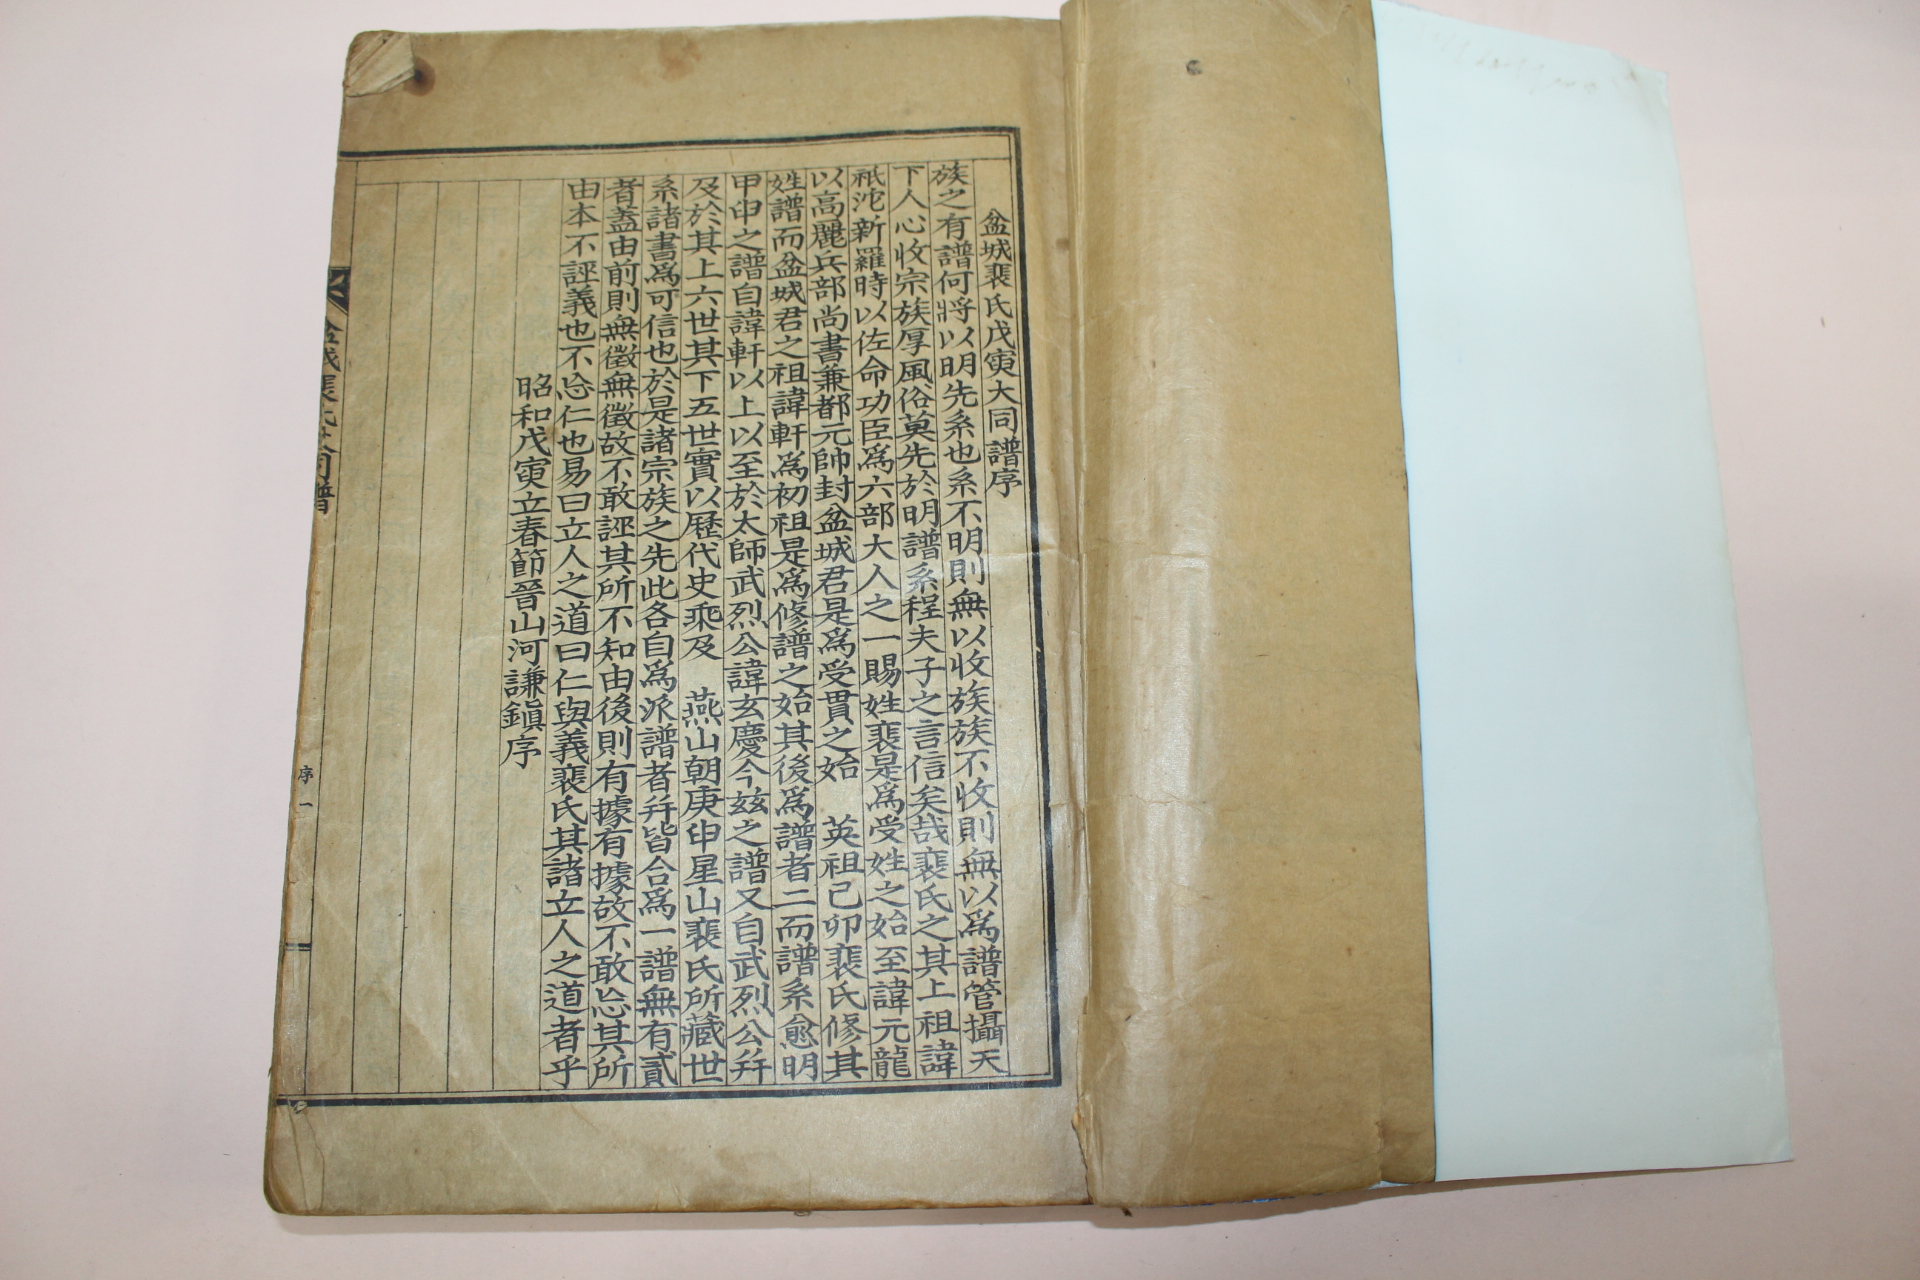 盆城裵氏戊寅大同譜序
族之有譜何將以明先系也系不明則無以收族族不收則無以爲譜管攝天
下人心收宗族厚風俗莫先於明譜系程夫子之言信矣哉裵氏之其上祖諱
祇沱新羅時以佐命功臣爲六部大人之一賜姓裵是爲受姓之始至諱元龍
以高麗兵部尚書兼都元帥封盆城君是爲受貫之始　英祖己卯裵氏修其
姓譜而盆城君之祖諱軒爲初祖是爲修譜之始其後爲譜者二而譜系愈明
甲申之譜自諱軒以上以至於太師武烈公諱玄慶今玆之譜又自武烈公幷
及於其上六世其下五世實以歷代史乘及　燕山朝庚申星山裵氏所藏世
系諸書爲可信也於是諸宗族之先此各自爲派譜者幷皆合爲一譜無有貳
者蓋由前則無徵無徵故不敢誣其所不知由後則有據有據故不敢忘其所
由本不誣義也不忘仁也易曰立人之道曰仁與義裵氏其諸立人之道者乎
昭和戊寅立春節晉山河謙鎭序
盆城裵氏大同譜
序一